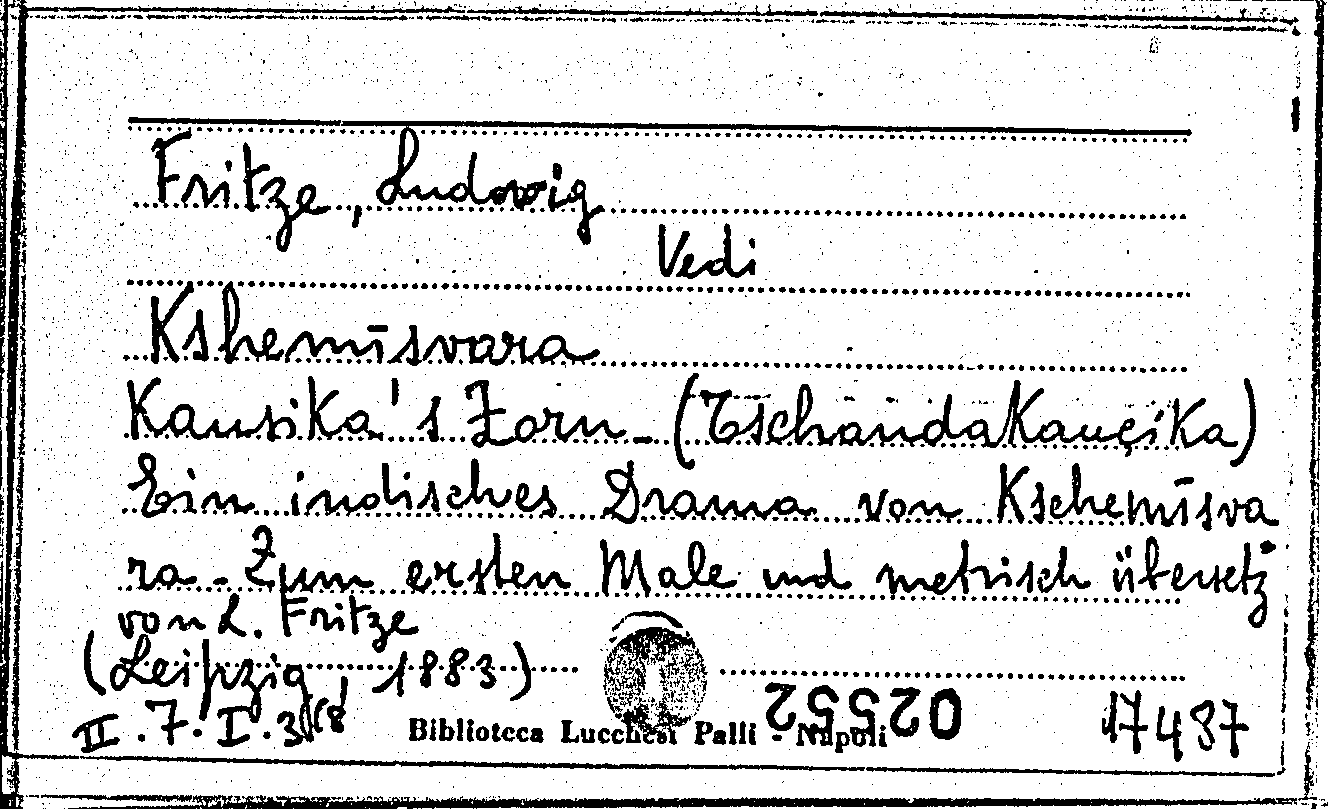 Fritze, Ludowig
Vedi
Kshemīsvara
Kausika's Zorn - (Tschandakauçika)
Ein indisches Drama von Kschemīsva
ra - Zum ersten Male und metrisch übersetz
von L. Fritze
(Leipzig, 1883)
II. 7. I. 3(8
Biblioteca Lucchesi Palli - Napoli
02552
17487